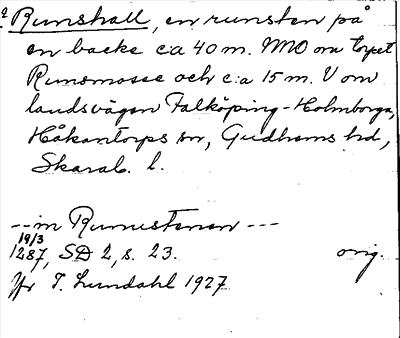 Runshall, en runsten på
en backe ca 40 m. NNO om torpet
Runsmosse och c:a 15 m. V om
landsvägen Falköping-Holmborga,
Håkantorps sn, Gudhems hd,
Skarab. l.
--- in Runustenen ---
19/3
1287, SD 2, s. 23. orig.
Yfr T. Lundahl 1927